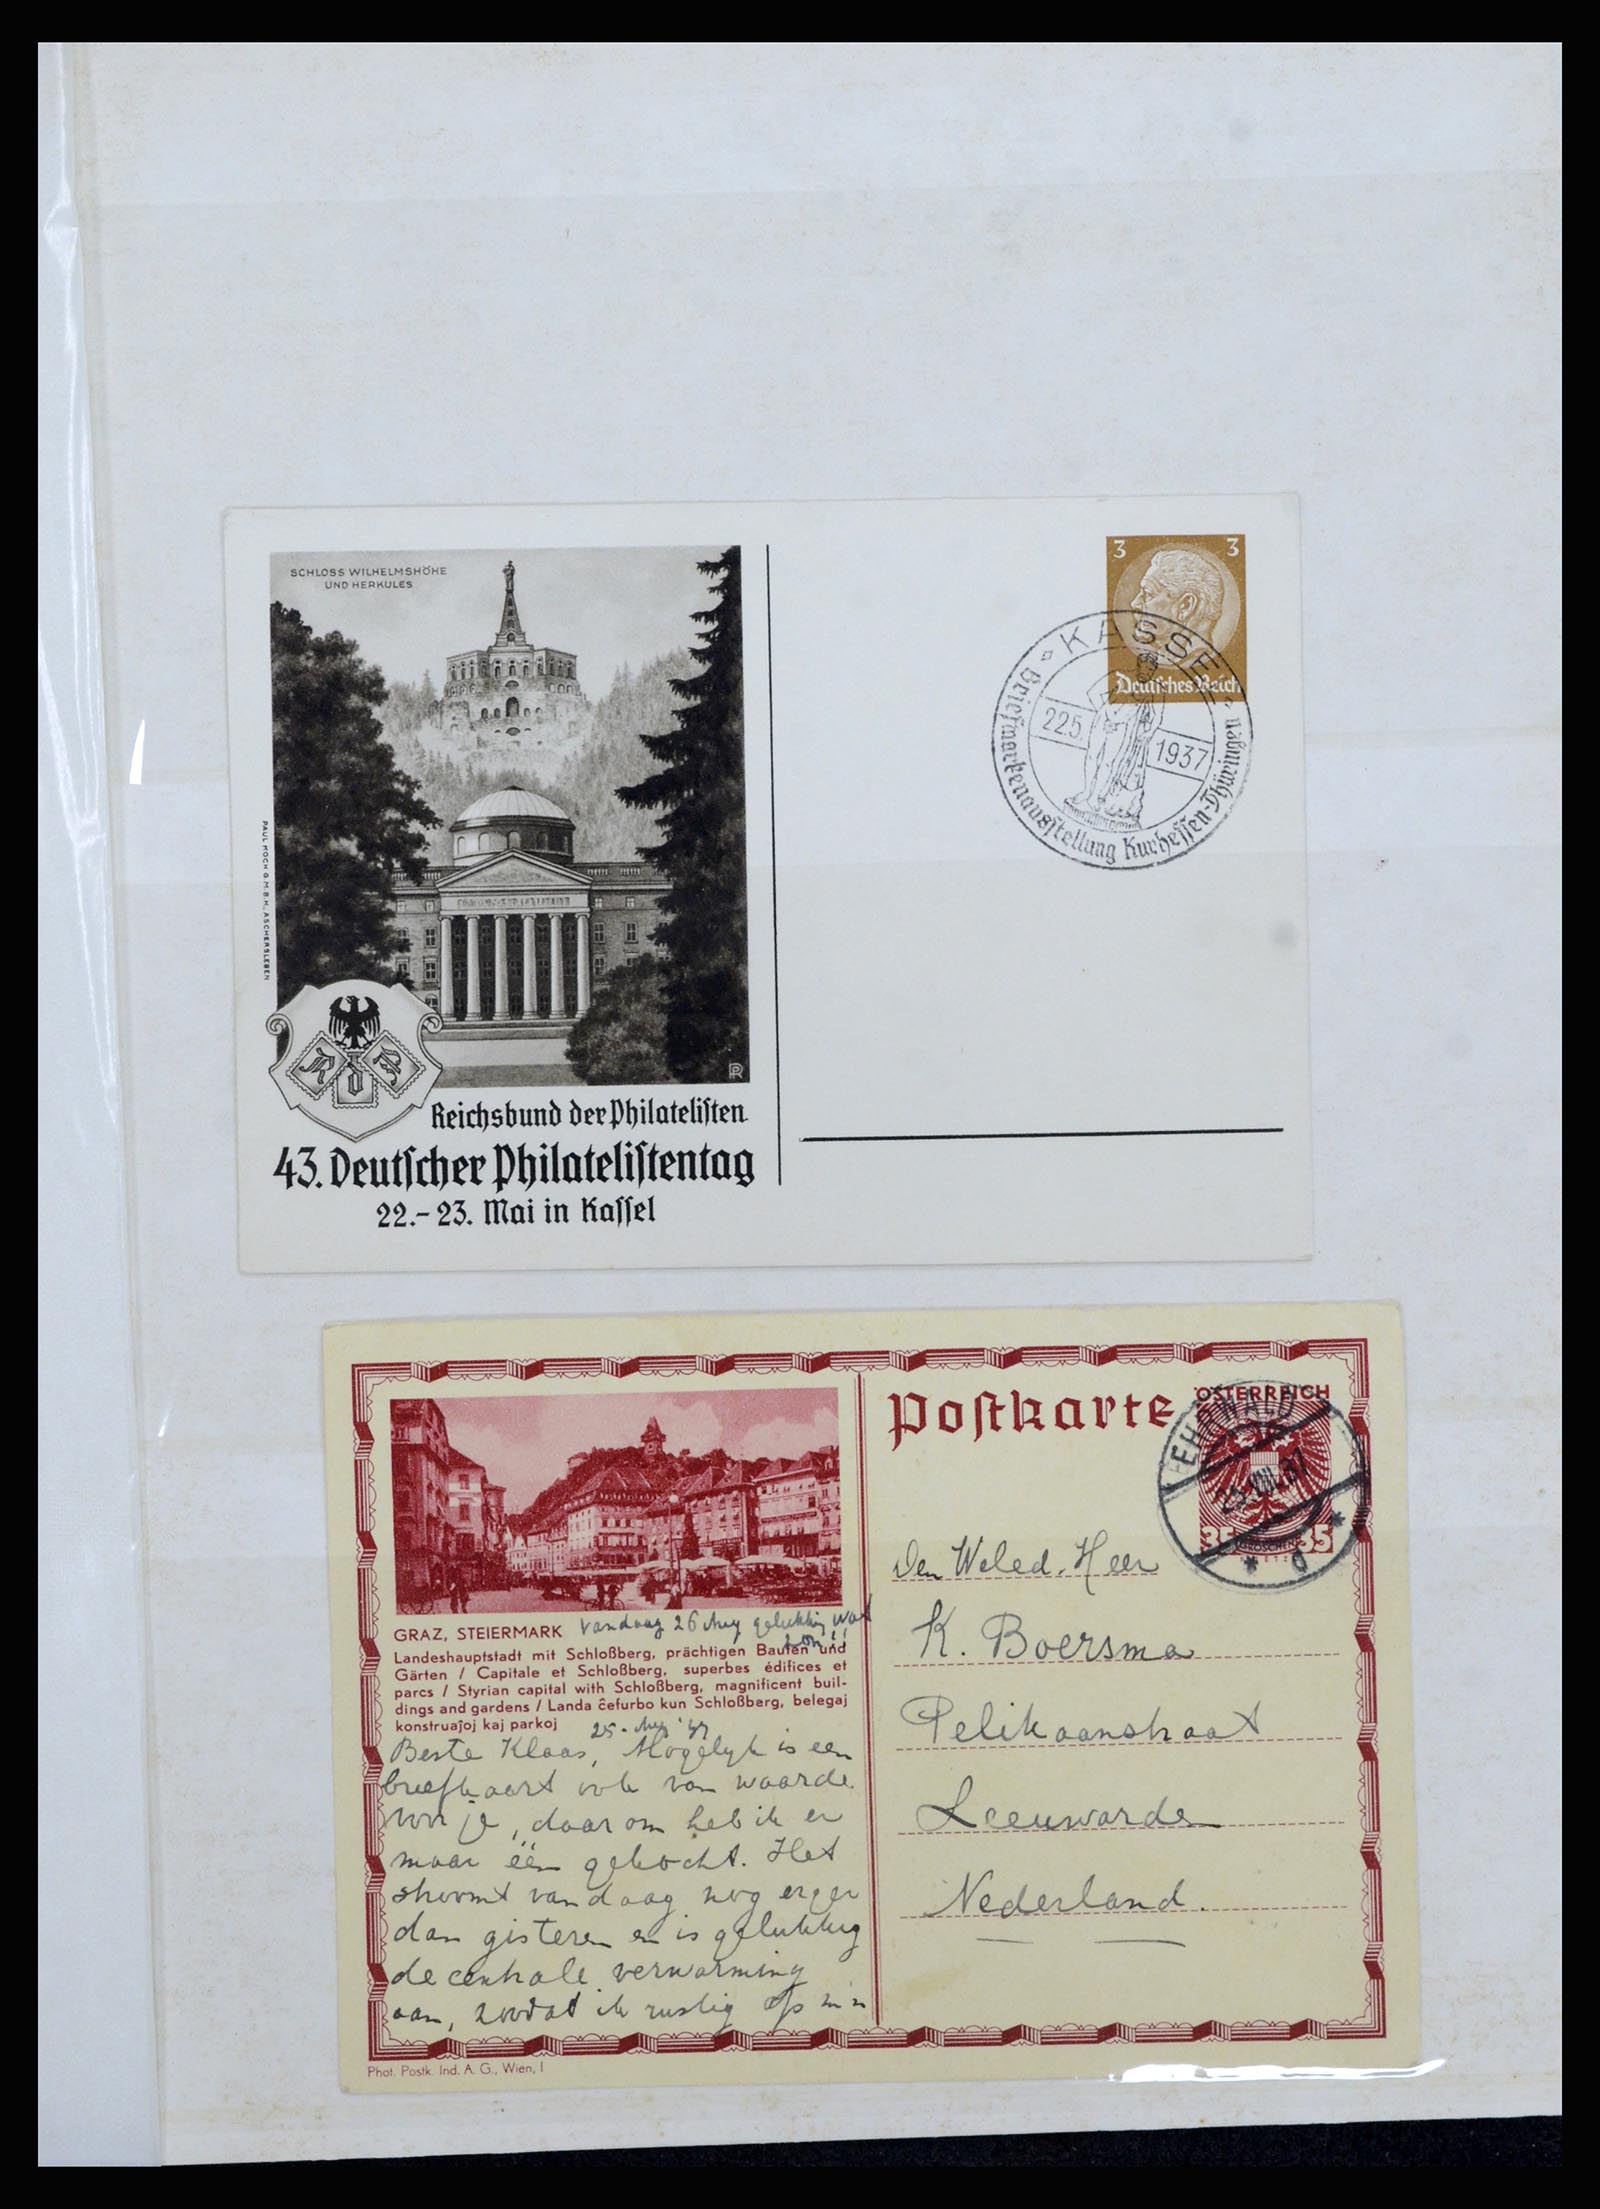 SCHLOSS WILHELMSHÖHE
UND HERKULES
PAUL KOCH G.M.B.H. ASCHERSLEBEN
PR
R d P
Reichsbund der Philatelisten
43. Deutscher Philatelistentag
22.-23. Mai in Kassel
3 3
Deutsches Reich
KASSEL
22.5. 1937
Briefmarkenausstellung Kurhessen-Thüringen
Postkarte
ÖSTERREICH
35 GROSCHEN 35
EHRWALD
25.VIII.37
* d *
Den Weled. Heer
K. Boersma
Pelikaanstraat
Leeuwarden
Nederland.
GRAZ, STEIERMARK
vandaag 26 Aug gelukkig wat
zon!!
Landeshauptstadt mit Schloßberg, prächtigen Bauten und
Gärten / Capitale et Schloßberg, superbes édifices et
parcs / Styrian capital with Schloßberg, magnificent buil-
dings and gardens / Landa ĉefurbo kun Schloßberg, belegaj
konstruaĵoj kaj parkoj
25-Aug '37
Beste Klaas, Mogelijk is een
briefkaart ook van waarde
voor je, daarom heb ik er
maar één gekocht. Het
stroomt vandaag nog erger
dan gisteren en is gelukkig
de centrale verwarming
aan, zoodat ik rustig op m'n
Phot. Postk. Ind. A. G., Wien, I